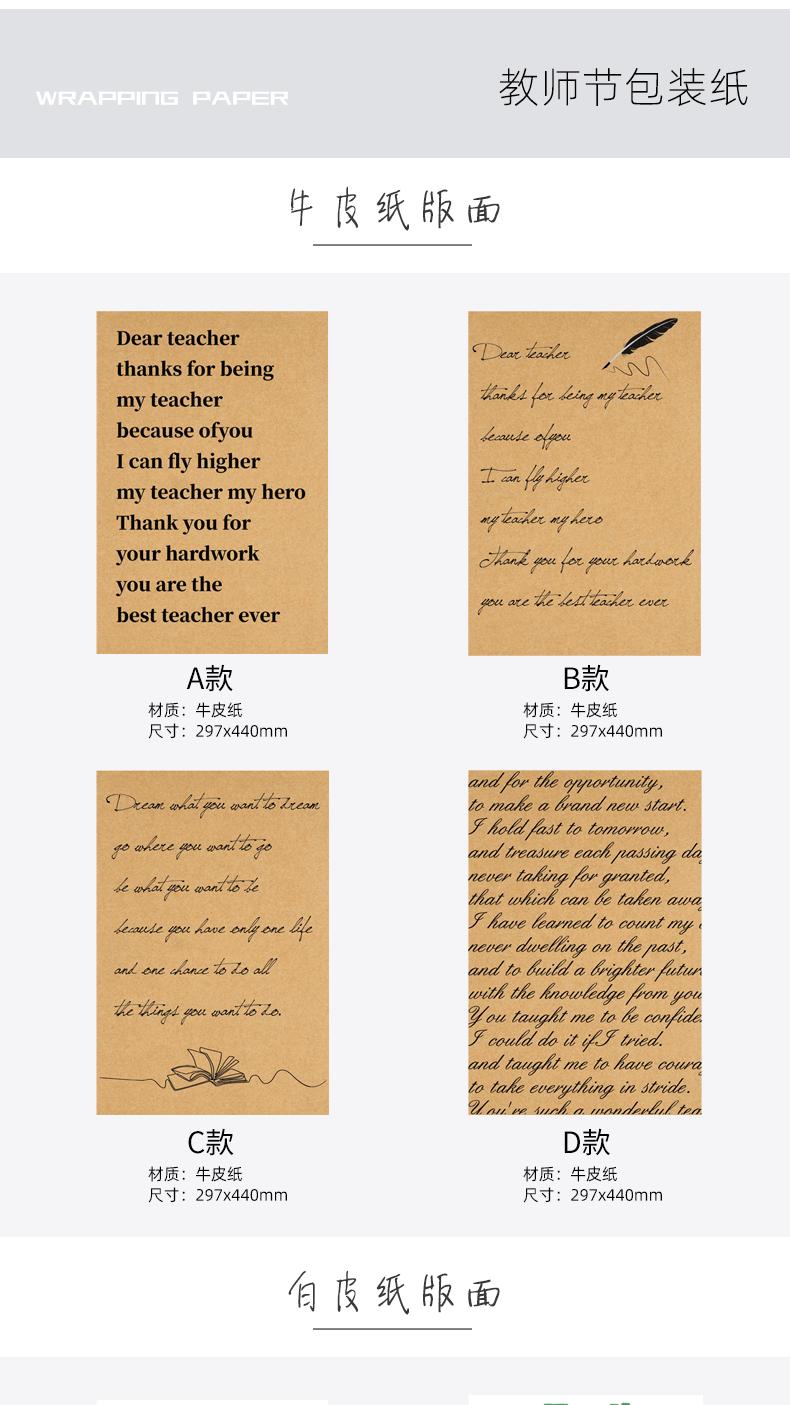 WRAPPING PAPER
教师节包装纸
牛皮纸版面
Dear teacher
thanks for being
my teacher
because ofyou
I can fly higher
my teacher my hero
Thank you for
your hardwork
you are the
best teacher ever
A款
材质：牛皮纸
尺寸：297x440mm
Dear teacher
thanks for being my teacher
because ofyou
I can fly higher
my teacher my hero
Thank you for your hardwork
you are the best teacher ever
B款
材质：牛皮纸
尺寸：297x440mm
Dream what you want to dream
go where you want to go
be what you want to be
because you have only one life
and one chance to do all
the things you want to do.
C款
材质：牛皮纸
尺寸：297x440mm
and for the opportunity,
to make a brand new start.
I hold fast to tomorrow,
and treasure each passing da
never taking for granted,
that which can be taken awa
I have learned to count my
never dwelling on the past,
and to build a brighter futur
with the knowledge from you
You taught me to be confide
I could do it if I tried.
and taught me to have coura
to take everything in stride.
You're such a wonderful tea
D款
材质：牛皮纸
尺寸：297x440mm
白皮纸版面